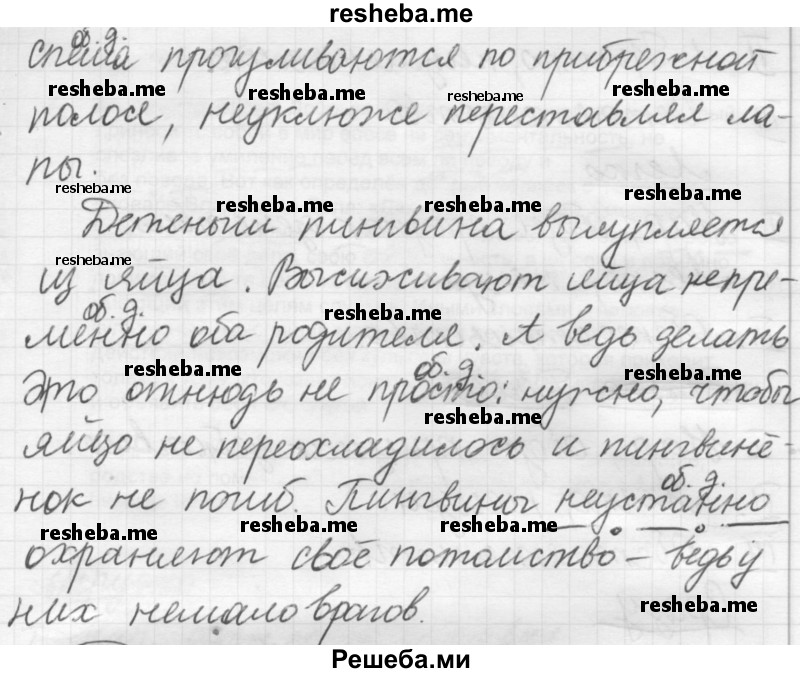 resheba.me
об. д.
спеша прогуливаются по прибрежной
resheba.me resheba.me resheba.me resheba.me
полосе, неуклюже переставляя ла-
пы.
resheba.me resheba.me resheba.me resheba.me
Детеныш пингвина вылупляется
resheba.me
из яйца. Высиживают яйца непре-
об. д. resheba.me
менно оба родителя. А ведь делать
resheba.me об. д. resheba.me
это отнюдь не просто: нужно, чтобы
resheba.me
яйцо не переохладилось и пингвинё-
об. д.
нок не погиб. Пингвины неустанно
resheba.me resheba.me resheba.me
охраняют своё потомство – ведь у
resheba.me
них немало врагов.
Решеба.ми